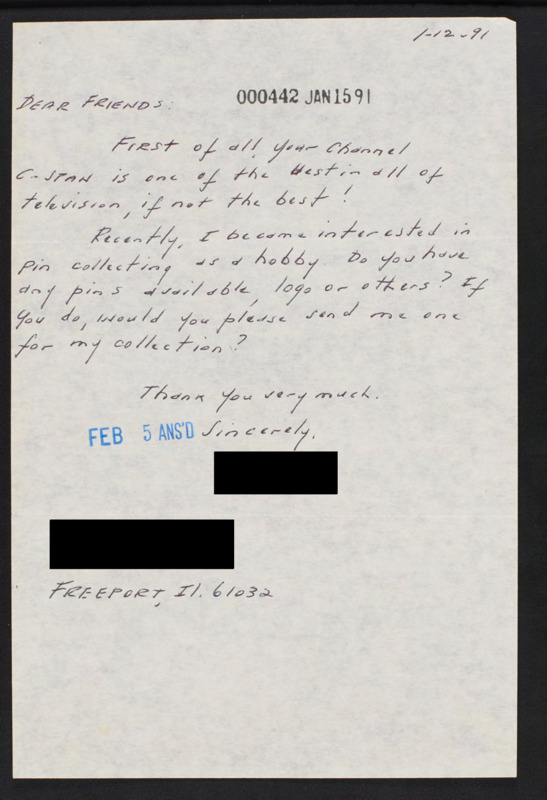 1-12-91
000442 JAN 15 91
DEAR FRIENDS:
FIRST of all, your Channel
C-SPAN is one of the best in all of
television, if not the best!
Recently, I became interested in
pin collecting as a hobby. Do you have
any pins available, logo or others? If
you do, would you please send me one
for my collection?
Thank you very much.
FEB 5 ANS'D Sincerely,
FREEPORT, Il. 61032